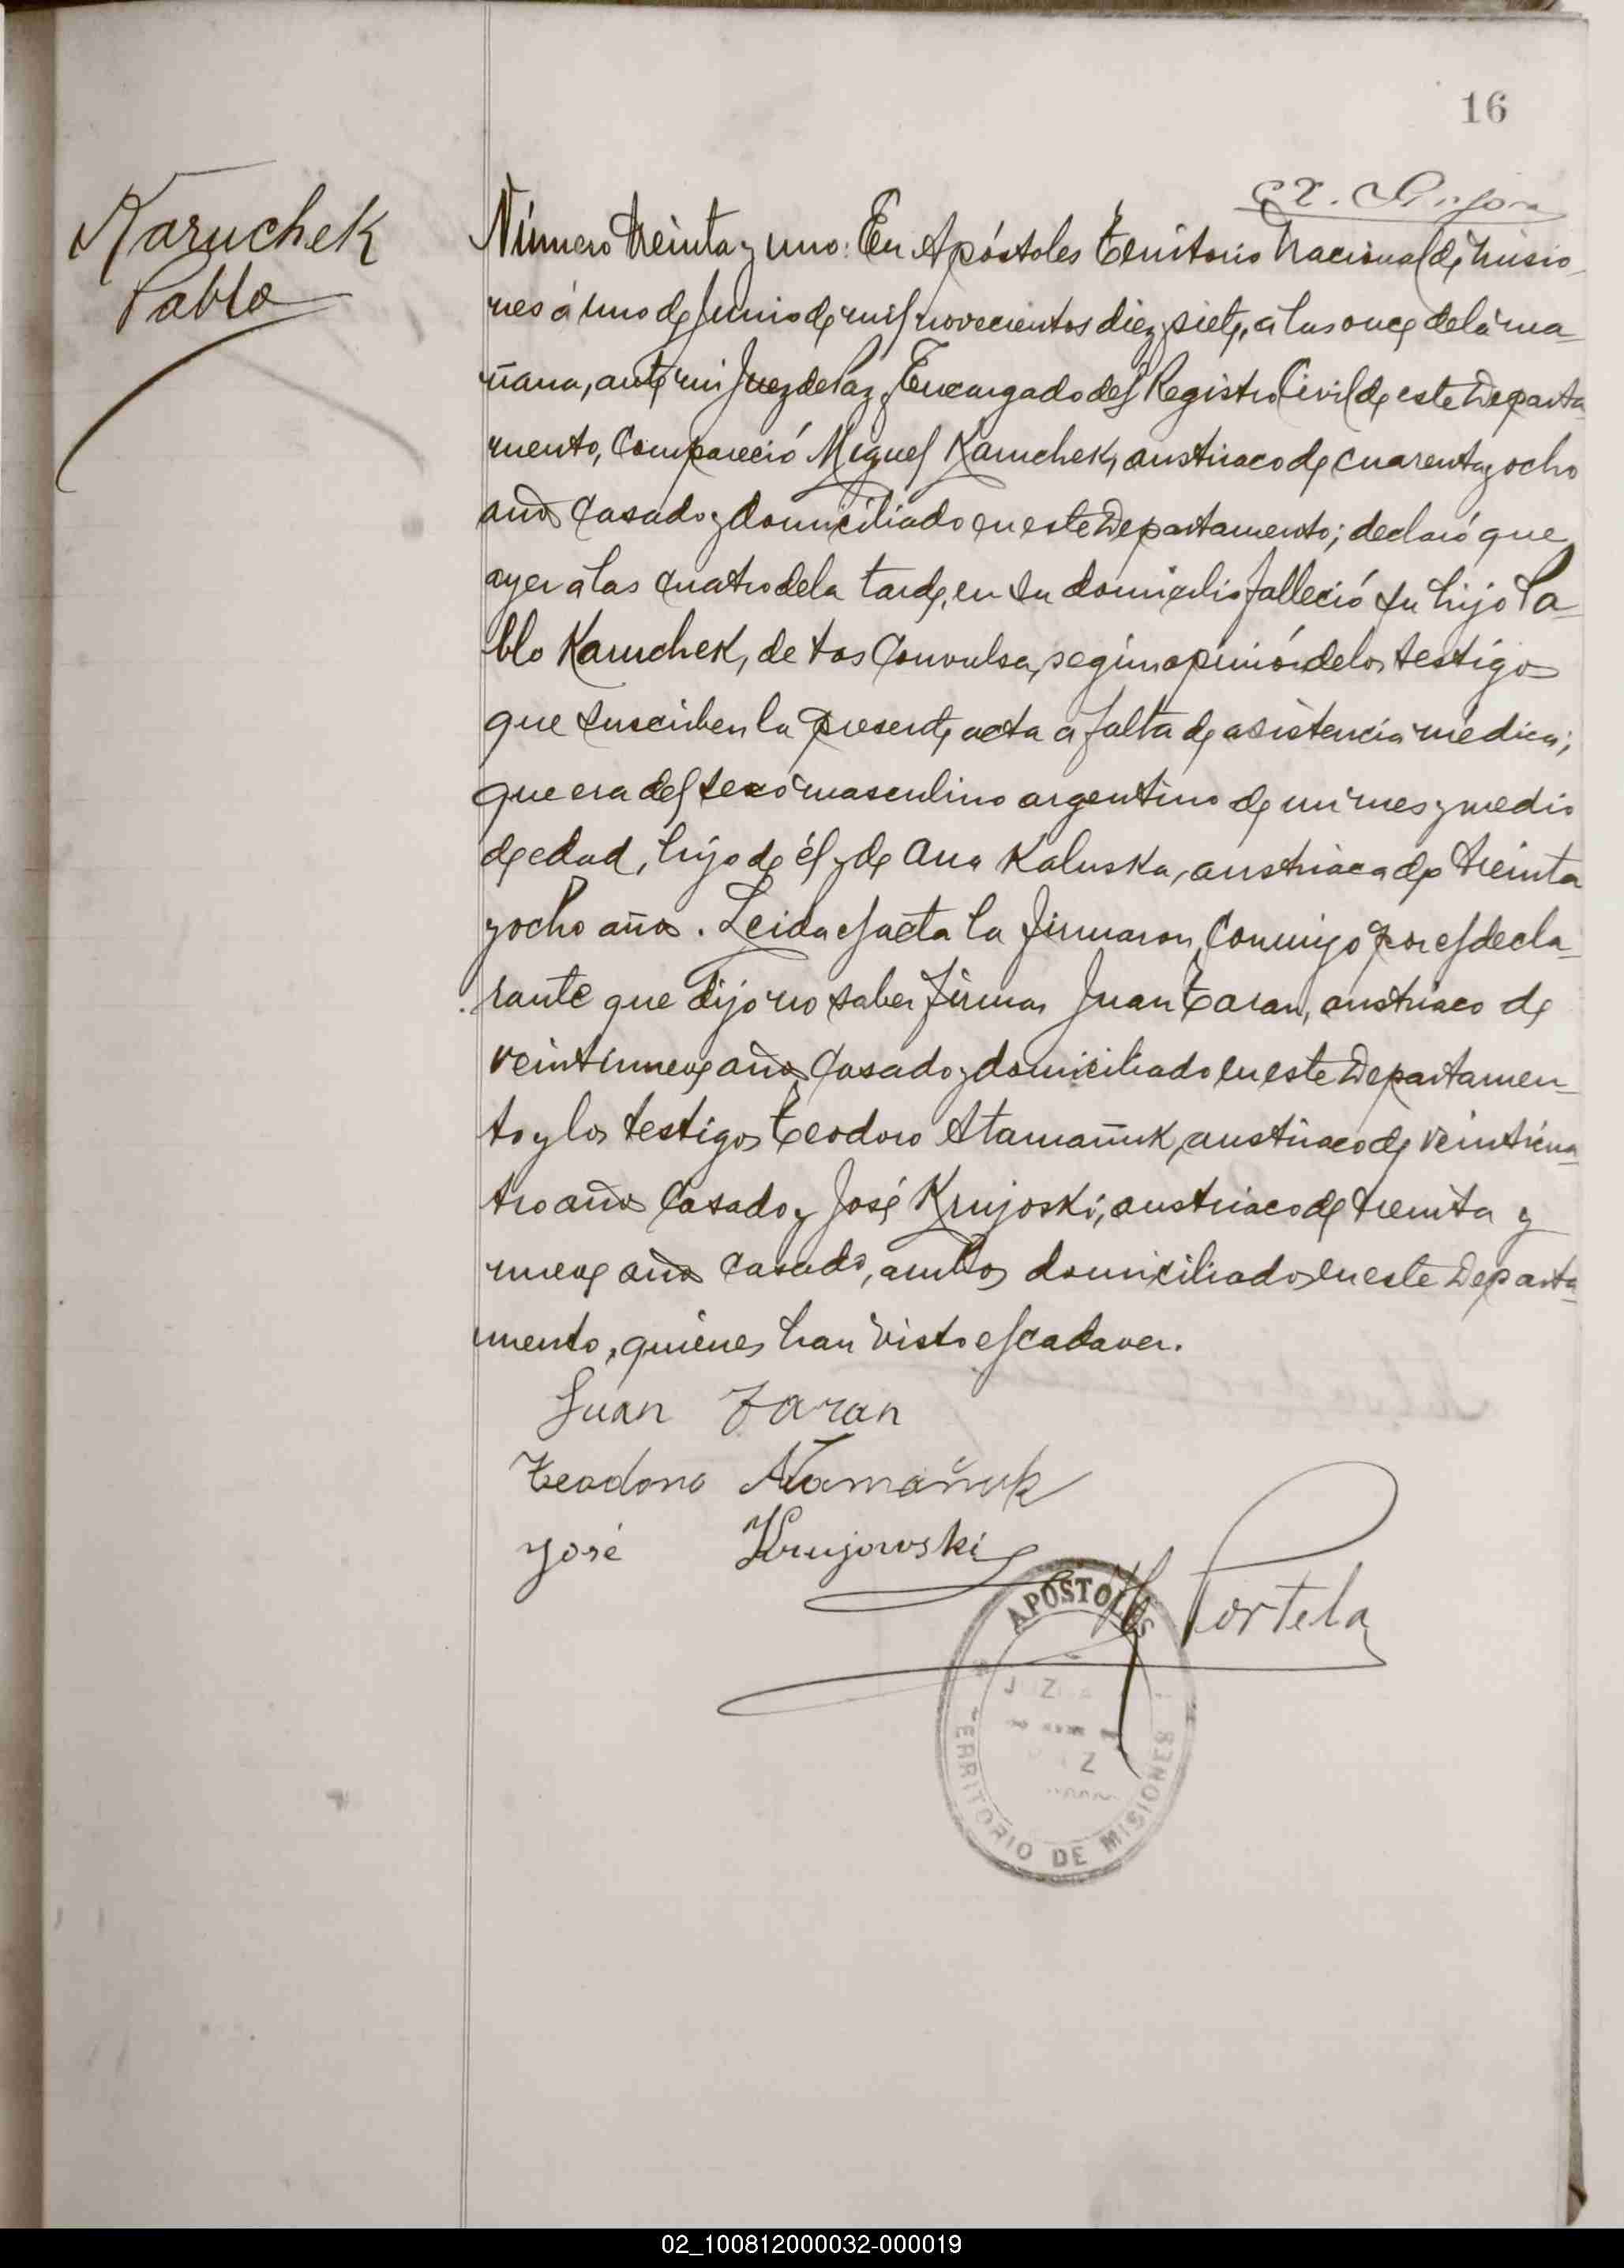 16
Karuchek
Pablo
Número treinta y uno: En Apóstoles Territorio Nacional de Misio-
nes á uno de Junio de mil novecientos diez y siete, a las once de la ma-
ñana, ante mi Juez de Paz y Encargado del Registro Civil de este Departa-
mento, Compareció Miguel Karuchek, austriaco de cuarenta y ocho
años Casado y domiciliado en este Departamento; declaró que
ayer a las cuatro de la tarde, en su domicilio falleció su hijo Pa-
blo Karuchek, de tos Convulsa, según opinión de los testigos
que suscriben la presente acta a falta de asistencia médica;
que era del sexo masculino argentino de un mes y medio
de edad, hijo de él y de Ana Kaluska, austriaca de treinta
y ocho años. Leida el acta la firmaron Conmigo por el decla-
rante que dijo no saber firmar Juan Taran, austriaco de
veintinueve años Casado y domiciliado en este Departamen-
to y los testigos Teodoro Atamañuk, austriaco de veinticua-
tro años Casado y José Krujoski, austriaco de treinta y
nueve años casado, ambos domiciliados en este Departa-
mento, quienes han visto el cadaver.
Juan Taran
Teodoro Atamañuk
José Krujowski
Portela
APOSTOLES
TERRITORIO DE MISIONES
02_100812000032-000019